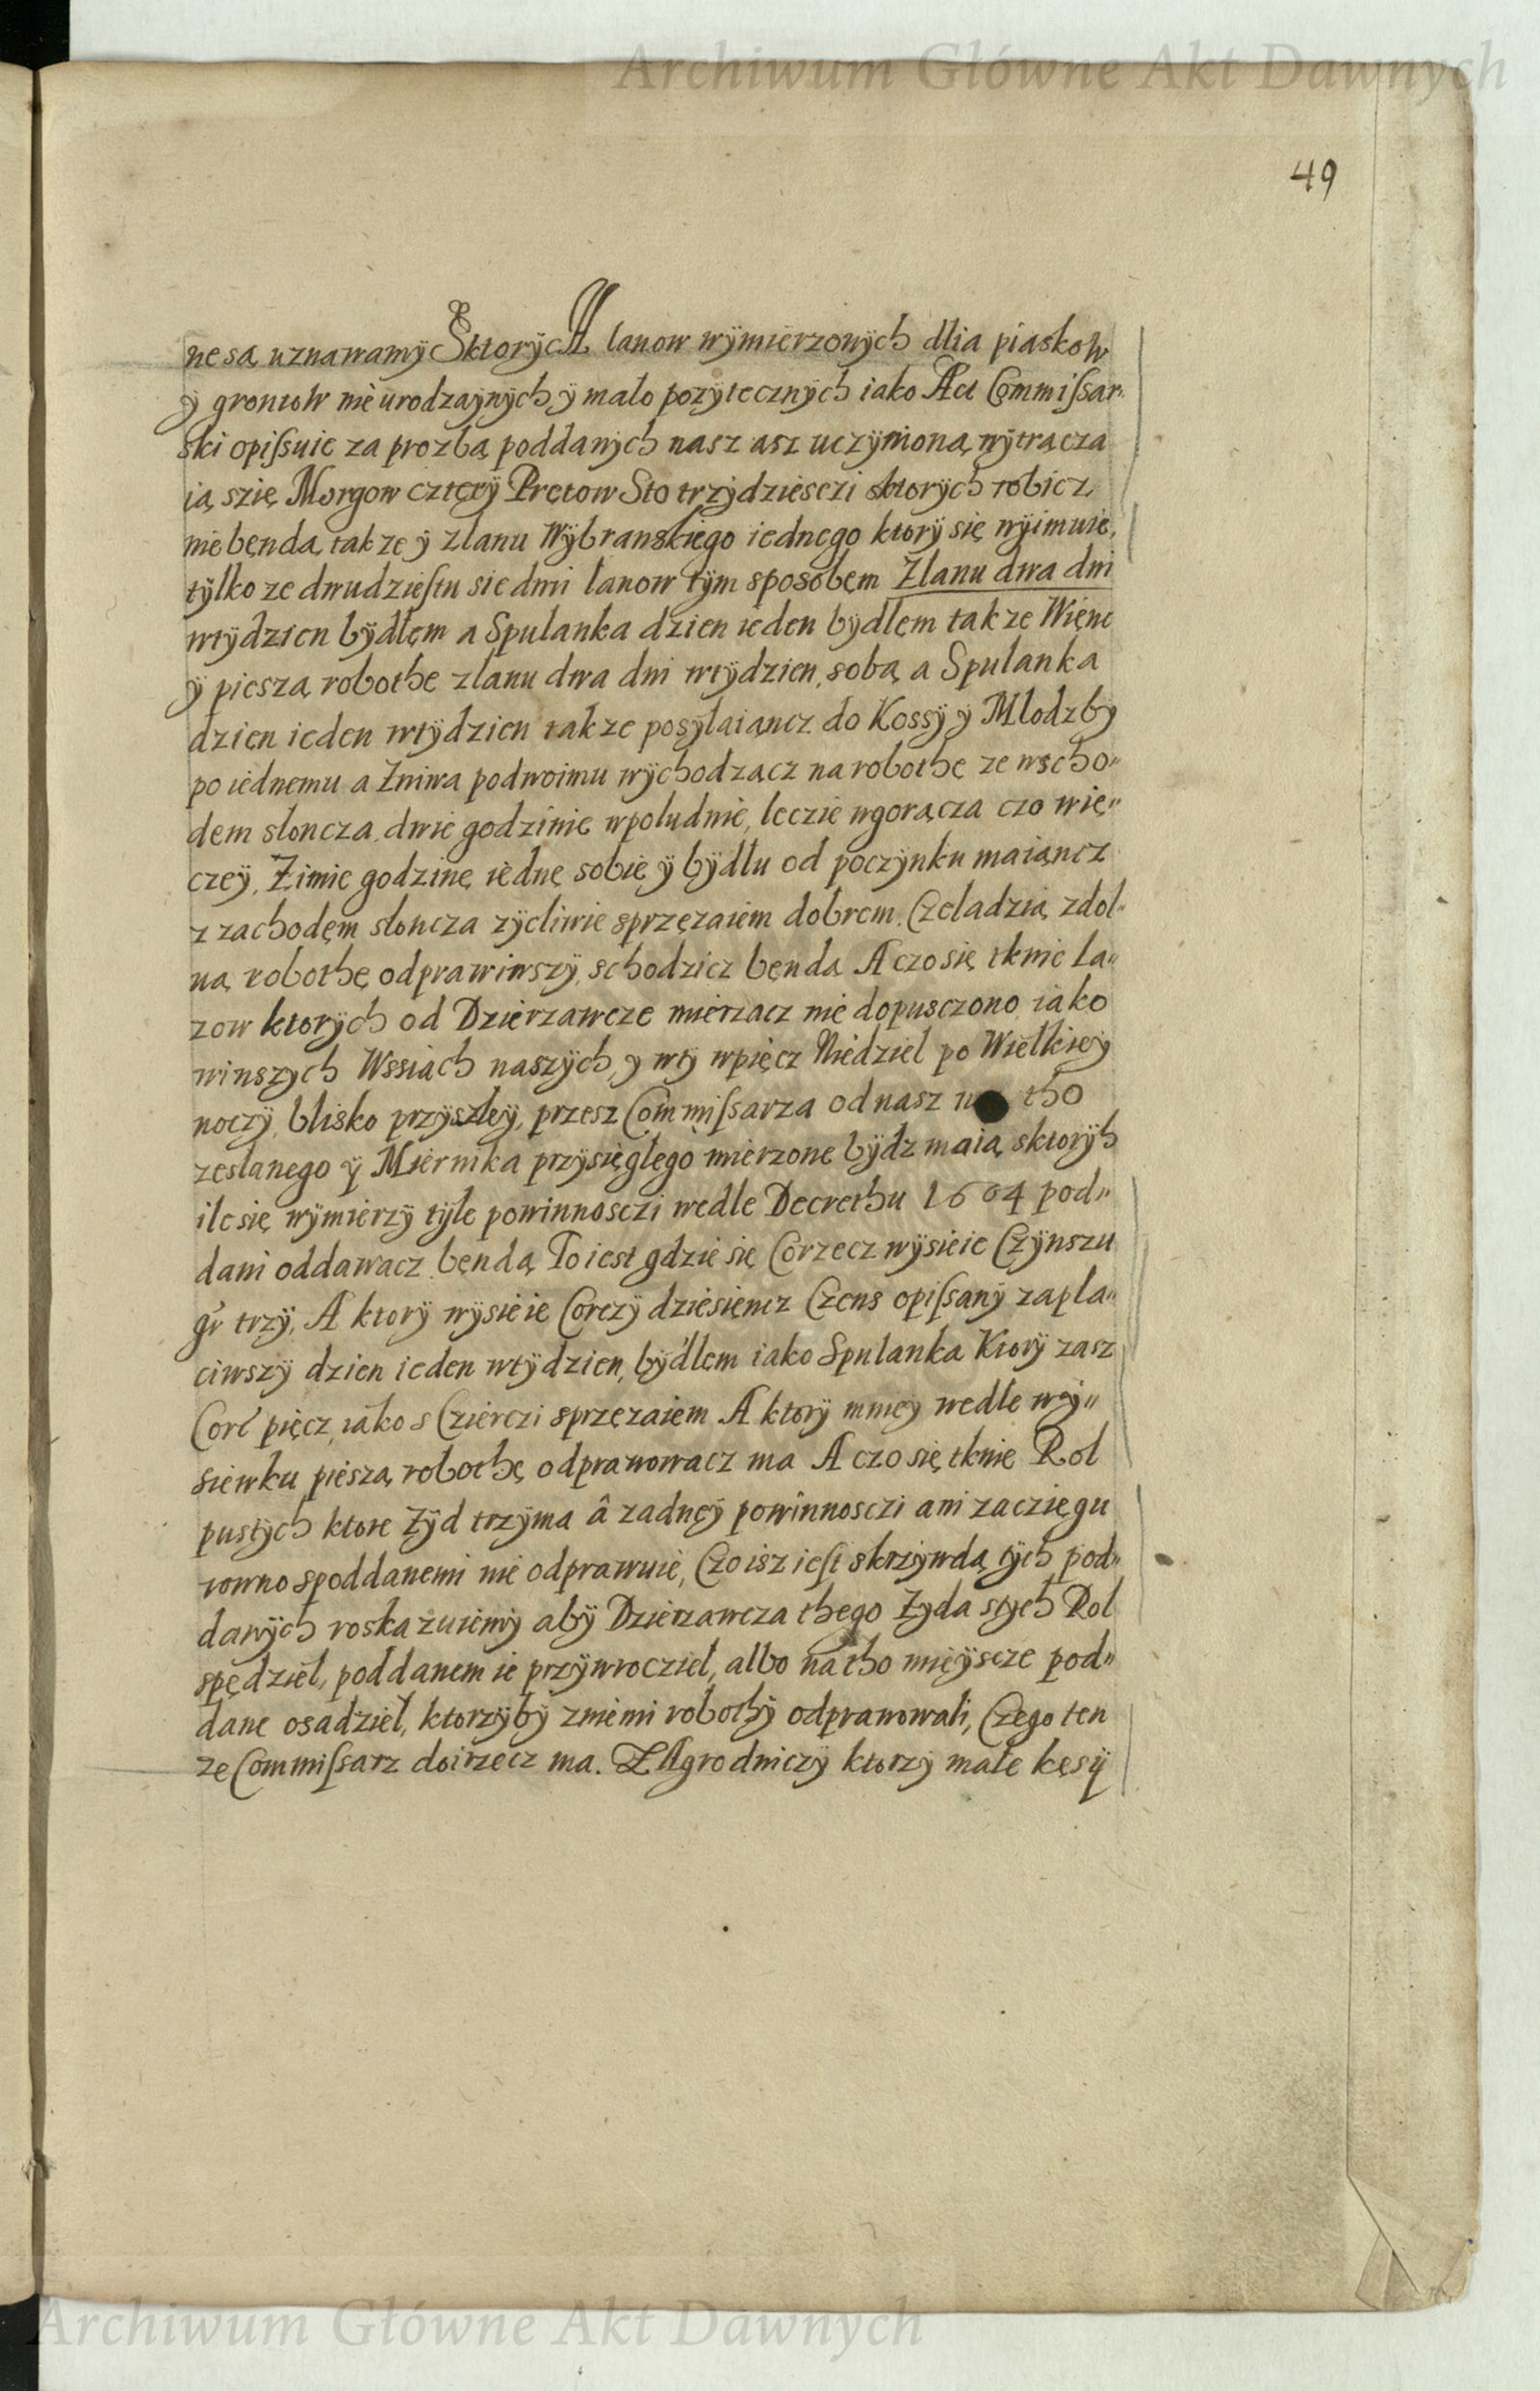 Archiwum Główne Akt Dawnych
49
ne są uznawamÿ SktorÿcH lanow wÿmierzonÿch dlia piaskow
ÿ grontow nie urodzaÿnÿch ÿ malo pozÿtecznÿch iako Act Commissar
ski opissuie za prozbą poddanÿch nasz asz uczÿnioną wÿtrącza
ią szię Morgow cztęrÿ Prętow Sto trzÿdziesczi sktorÿch robicz
nie będą takze ÿ zlanu Wÿbranskiego iednego ktorÿ się wÿimuie,
tÿlko ze dwudziestu siedmi lanow tÿm sposobem Zlanu dwa dni
wtÿdzien bÿdłem a Spulanka dzien ieden bÿdlem takze Więnc
ÿ pieszą robothe zlanu dwa dni wtÿdzien, sobą a Spulanka
dzien ieden wtÿdzien takze posÿlaiancz do Kossÿ ÿ Mlodzbÿ
po iednemu a Zniwa podwoimu wÿchodzącz na robothę ze wscho„
dem sloncza dwie godzinie wpoludnie, leczie wgorącza czo wię„
czeÿ, Zimie godzinę iednę sobie ÿ bÿdlu od poczÿnku maiąncz
z zachodem sloncza zÿcliwie sprzęzaiem dobrem Czeladzią zdol„
ną robothę odprawiwszÿ, schodzicz będa A czo się tknie La„
zow ktorÿch od Dzierzawcze mierzacz nie dopusczono iako
winszÿch Wssiach naszÿch, ÿ wtÿ wpięcz Niedziel po Wielkieÿ
noczÿ, blisko przÿszleÿ, przesz Commissarza od nasz tho
zeslanego ÿ Miernika przÿsięglego mierzone bÿdz maią sktorÿh
ile się wÿmierzÿ tÿle powinnosczi wedle Decrethu 1604 pod„
dani oddawacz będą To iest gdzie się Corzecz wÿsieie Czÿnszu
gr trzÿ, A ktorÿ wÿsieie Corczÿ dziesięncz Czens opissanÿ zapla„
ciwszÿ dzien ieden wtÿdzien, bÿdlem iako Spulanka Ktorÿ zasz
Corc pięcz, iako s Czierczi sprzęzaiem A ktorÿ mnieÿ wedle wÿ„
siewku pieszą robothę odprawowacz ma A czo się tknie Rol
pustÿch ktore Zÿd trzÿma â zadnęÿ powinnosczi ani zaczięgu
rowno spoddanemi nie odprawuie, Czo isz iest skrzÿwdą tÿch pod„
danÿch roskazuiemÿ abÿ Dzierzawcza thego Zÿda stÿch Rol
spędziel, poddanem ie przÿwrocziel, albo na tho mieÿscze pod„
dane osadziel, ktorzÿbÿ zniemi robothÿ odprawowali, Czego ten
ze Commissarz doirzecz ma. ZAgrodniczÿ ktorzÿ male kęsÿ
Archiwum Główne Akt Dawnych